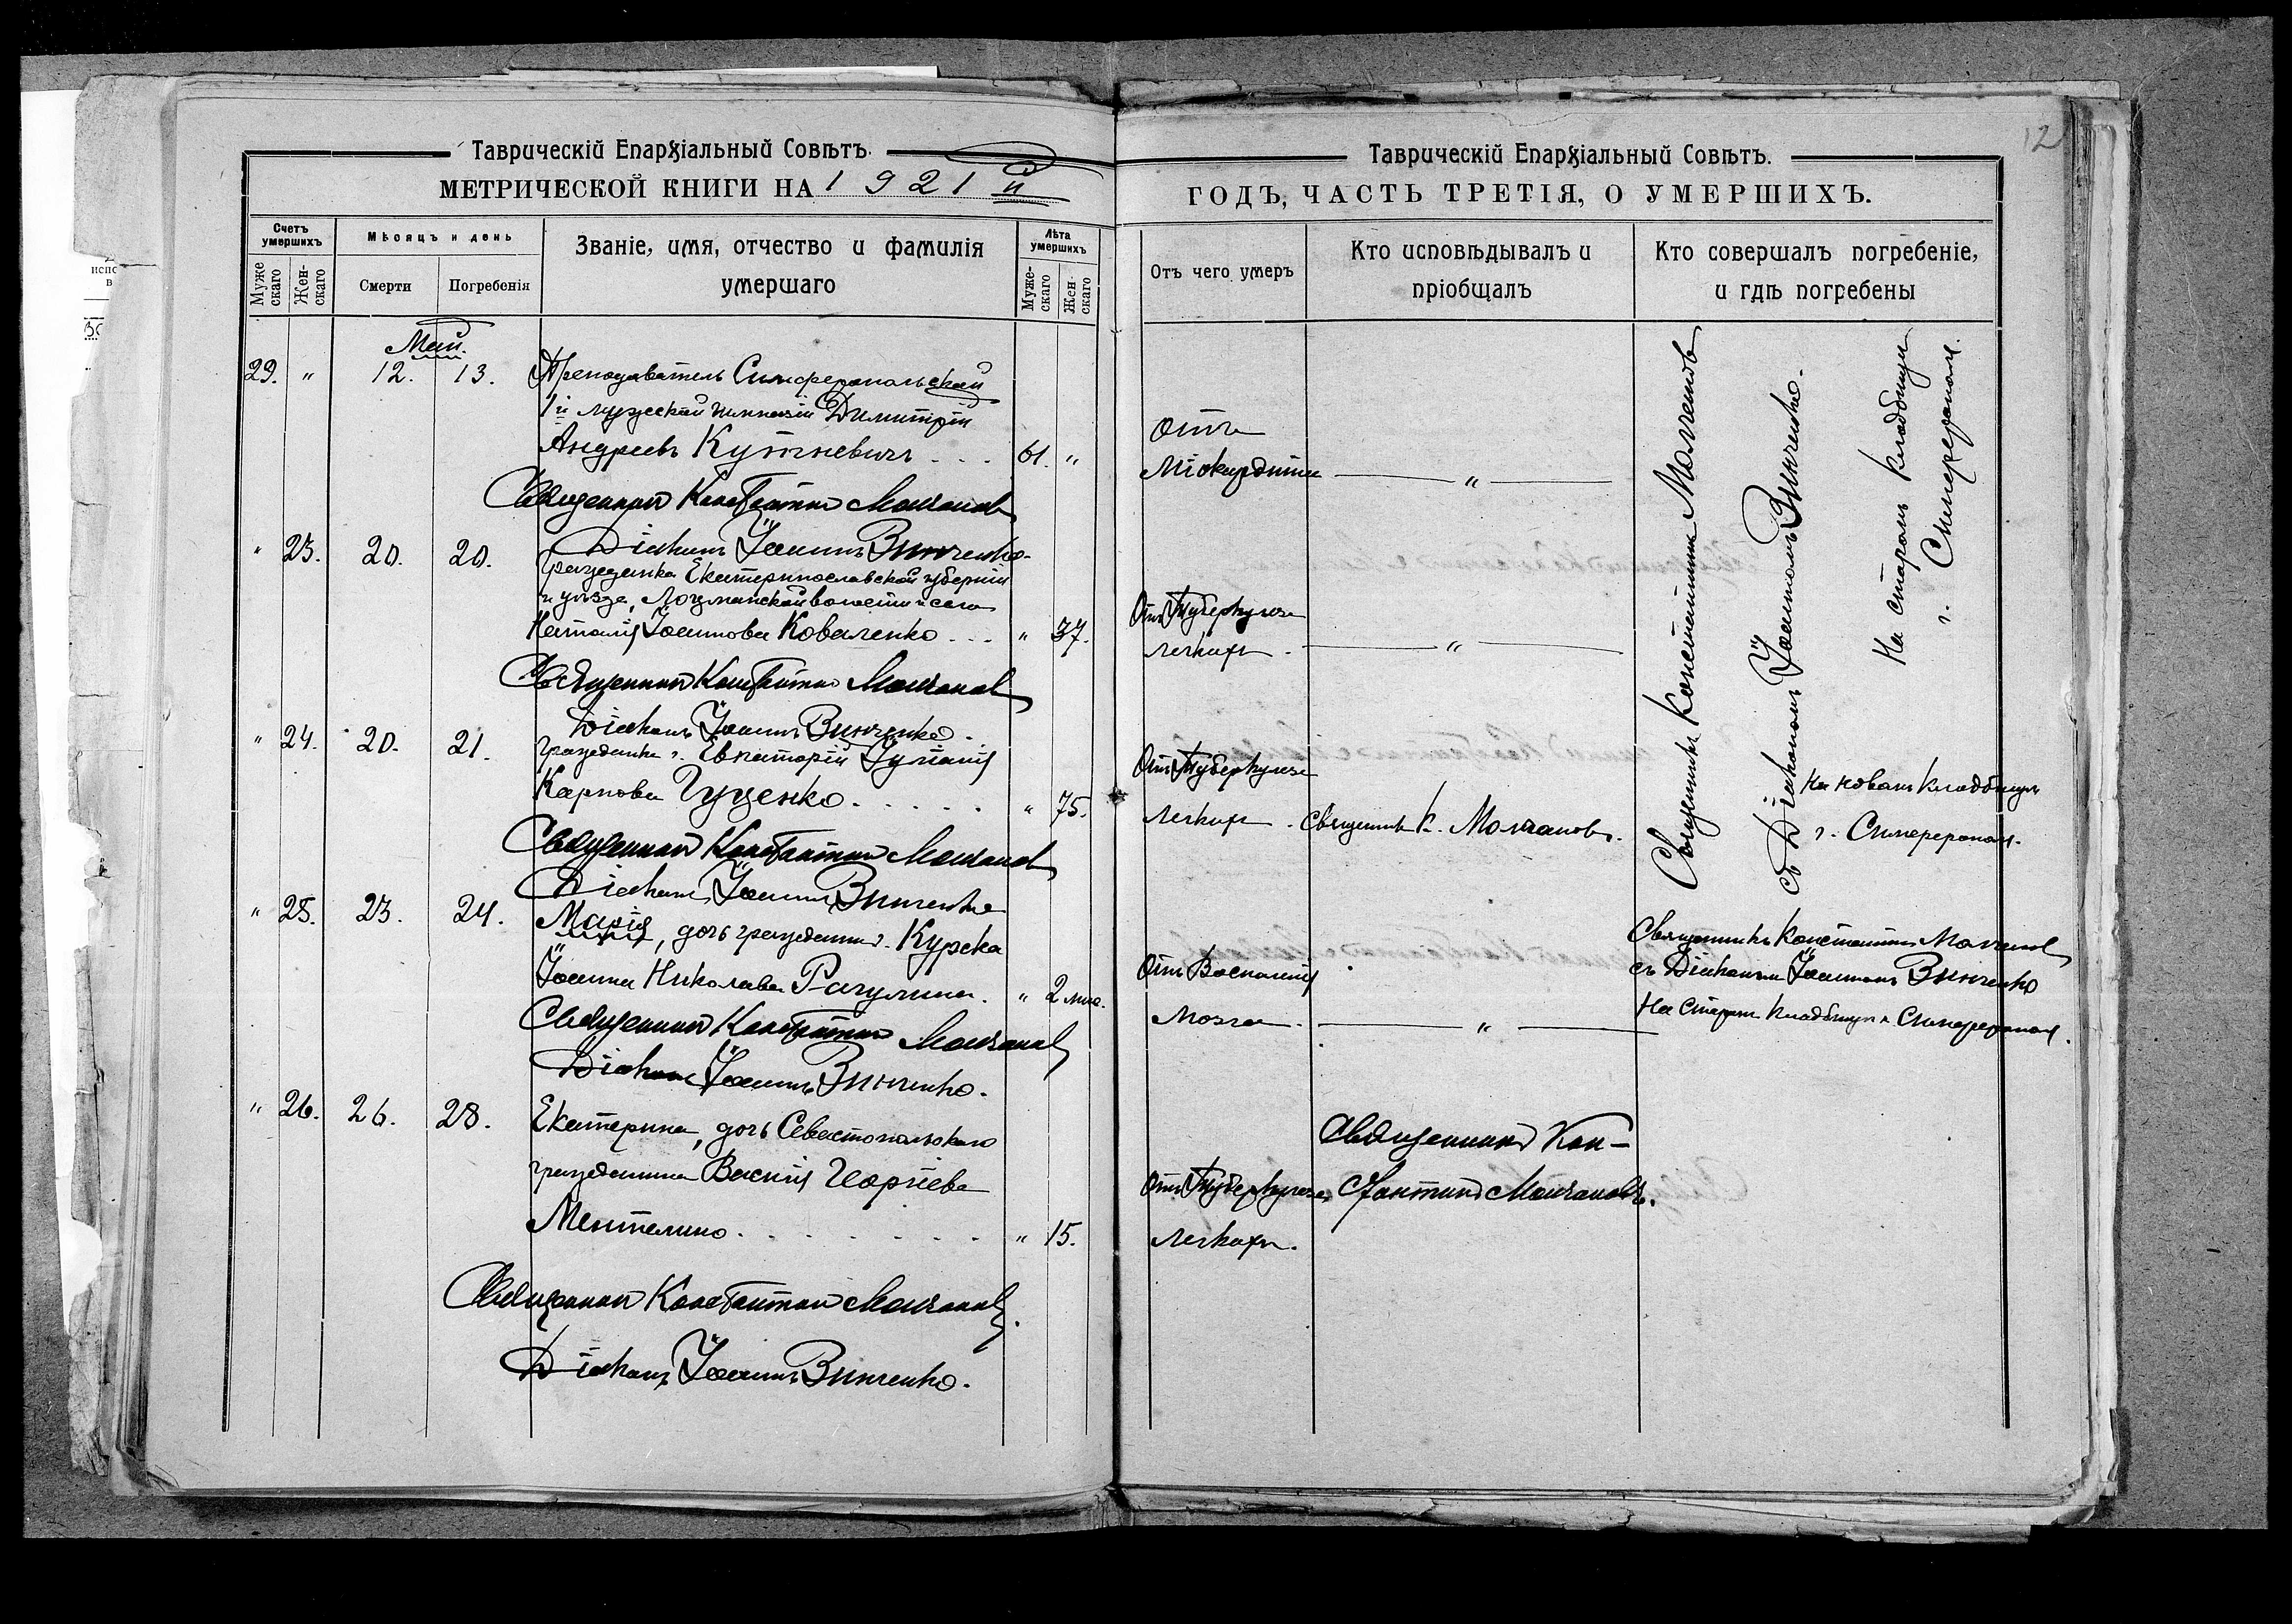 Таврическій Епархіальный Совѣтъ.
МЕТРИЧЕСКОЙ КНИГИ НА 1921 й
Счетъ умершихъ
Мужескаго
Женскаго
Мѣсяцъ и день
Смерти
Погребенія
Званіе, имя, отчество и фамилія
умершаго
Лѣта умершихъ
Мужескаго
Женскаго
Май.
29. " 12. 13. Преподаватель Симферопольской
1й мужской гимназіи Димитрій
Андреевъ Кутневичъ . . . 61. "
Священникъ Константинъ Молчановъ
Діаконъ Іоаннъ Винченко.
" 23. 20. 20. гражданка Екатеринославской губерніи
и уѣзда, Лоцманской волости и села
Наталія Іоаннова Коваленко . . . " 37.
Священникъ Константинъ Молчановъ
Діаконъ Іоаннъ Винченко.
" 24. 20. 21. гражданка г. Евпаторіи Іуліанія
Карпова Гуценко . . . . . " 75.
Священникъ Константинъ Молчановъ
Діаконъ Іоаннъ Винченко
" 25. 23. 24. Марія, дочь гражданина г. Курска
Іоанна Николаева Рагулина. " 2 мѣс.
Священникъ Константинъ Молчановъ
Діаконъ Іоаннъ Винченко.
" 26. 26. 28. Екатерина, дочь Севастопольскаго
гражданина Василія Георгіева
Ментелино . . . . . . . " 15.
Священникъ Константинъ Молчановъ.
Діаконъ Іоаннъ Винченко.
12
Таврическій Епархіальный Совѣтъ.
ГОДЪ, ЧАСТЬ ТРЕТІЯ, О УМЕРШИХЪ.
Отъ чего умеръ
Кто исповѣдывалъ и
пріобщалъ
Кто совершалъ погребеніе,
и гдѣ погребены
Отъ
Міокардита "
Отъ Туберкулеза
легкихъ. "
Отъ Туберкулеза
легкихъ. Священникъ К. Молчановъ.
Отъ Воспаленія
мозга. "
Отъ Туберкулеза
легкихъ.
Священникъ Кон-
стантинъ Молчановъ.
Священникъ Константинъ Молчановъ
съ Діакономъ Іоанномъ Винченко.
На старомъ кладбищѣ
г. Симферополя.
На новомъ кладбищѣ
г. Симферополя.
Священникъ Константинъ Молчановъ
съ Діакономъ Іоанномъ Винченко
На Старомъ кладбищѣ г. Симферополя.